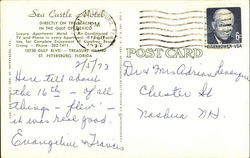 Sea Castle Motel
DIRECTLY ON THE BEACH
IN THE GULF OF MEXICO
Luxury Apartment Motel - Air-Conditioned
TV and Phone in every Apartment
for Complete Enjoyment of Carefree Resort
Living - Phone: 360-7411
10750 GULF BLVD. - TREASURE ISLAND
ST. PETERSBURG, FLORIDA
POST CARD
EISENHOWER·USA
2/5/73
Here till about
the 16th - of all
things - "flew" -
it was real good.
Evangeline & Francis
Dr & Mrs Adrian
Chester St
Nashua NH.